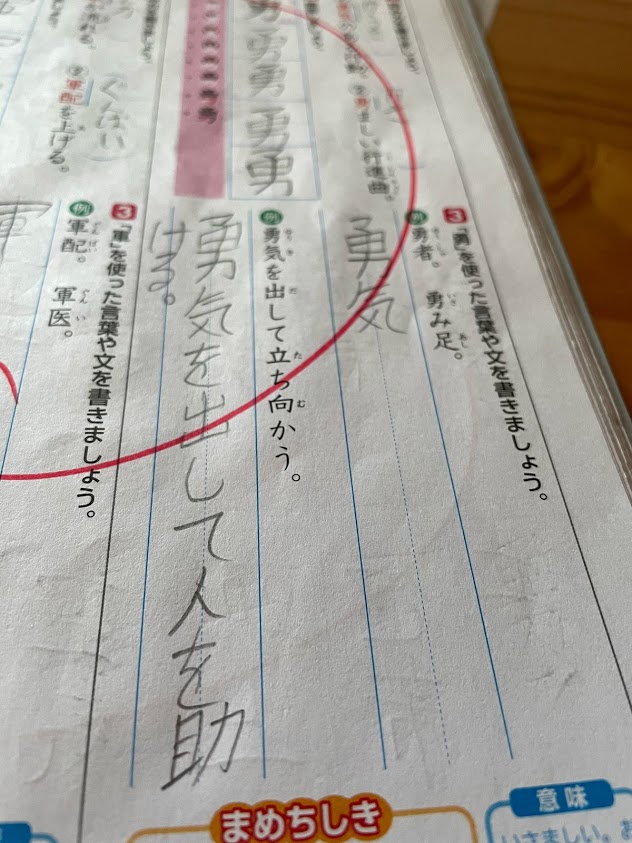 3「勇」を使った言葉や文を書きましょう。
例 勇者。 勇み足。
勇気
例 勇気を出して立ち向かう。
勇気を出して人を助
ける。
勇
勇
勇
勇
勇
ましい行進曲。
3「軍」を使った言葉や文を書きましょう。
例 軍配。 軍医。
軍
ぐんばい
軍配を上げる。
まめちしき
意味
いさましい。お